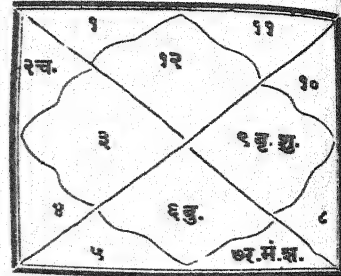 १ ११
१२
२च. १०
३ ९बृ.शु.
४ ६बु. ८
५ ७र.मं.श.